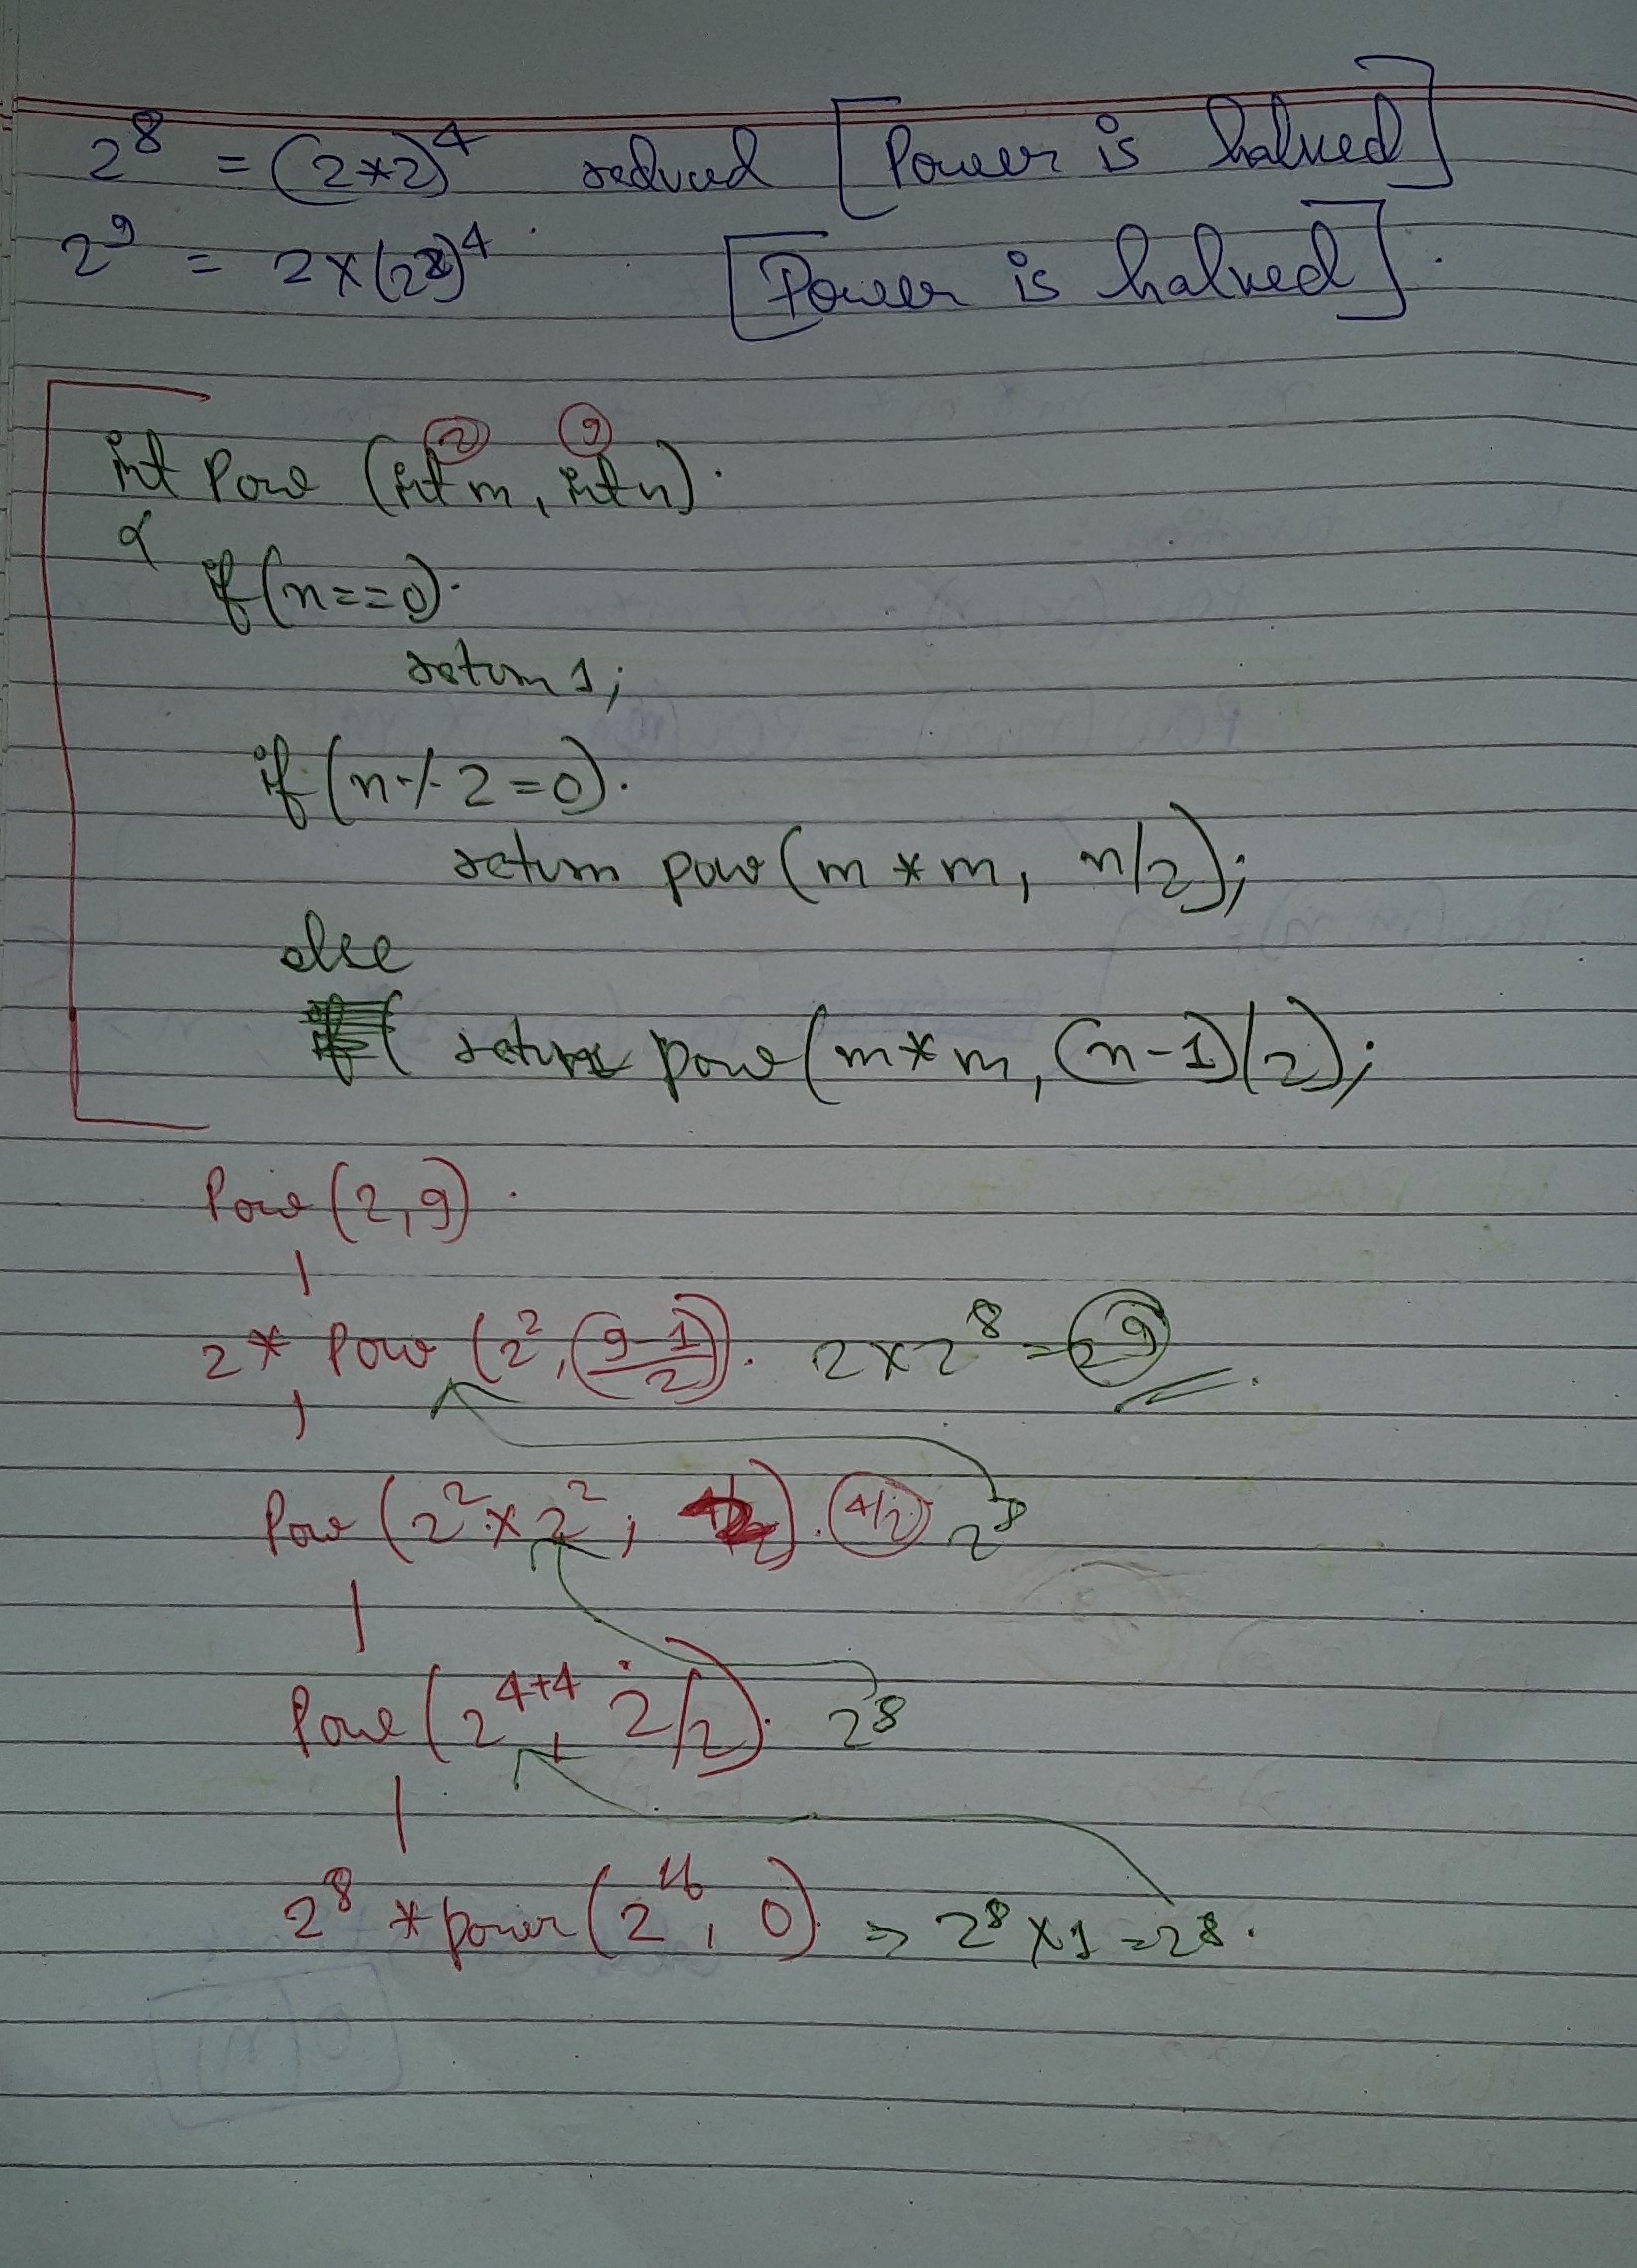 2⁸ = (2*2)⁴ reduced [Power is halved]
2⁹ = 2×(2²)⁴ [Power is halved].
2 9
int Pow (int m, int n)
{
if (n==0)
return 1;
if (n % 2 = 0)
return pow (m * m, n/2);
else
return pow (m * m, (n-1)/2);
Pow (2,9)
2 * Pow (2², (9-1)/2). 2×2⁸ = 2⁹
Pow (2²×2², ). 4/2 2⁸
Pow (2⁴⁺⁴, 2/2). 2⁸
2⁸ * power (2¹⁶, 0) ⇒ 2⁸ × 1 = 2⁸.